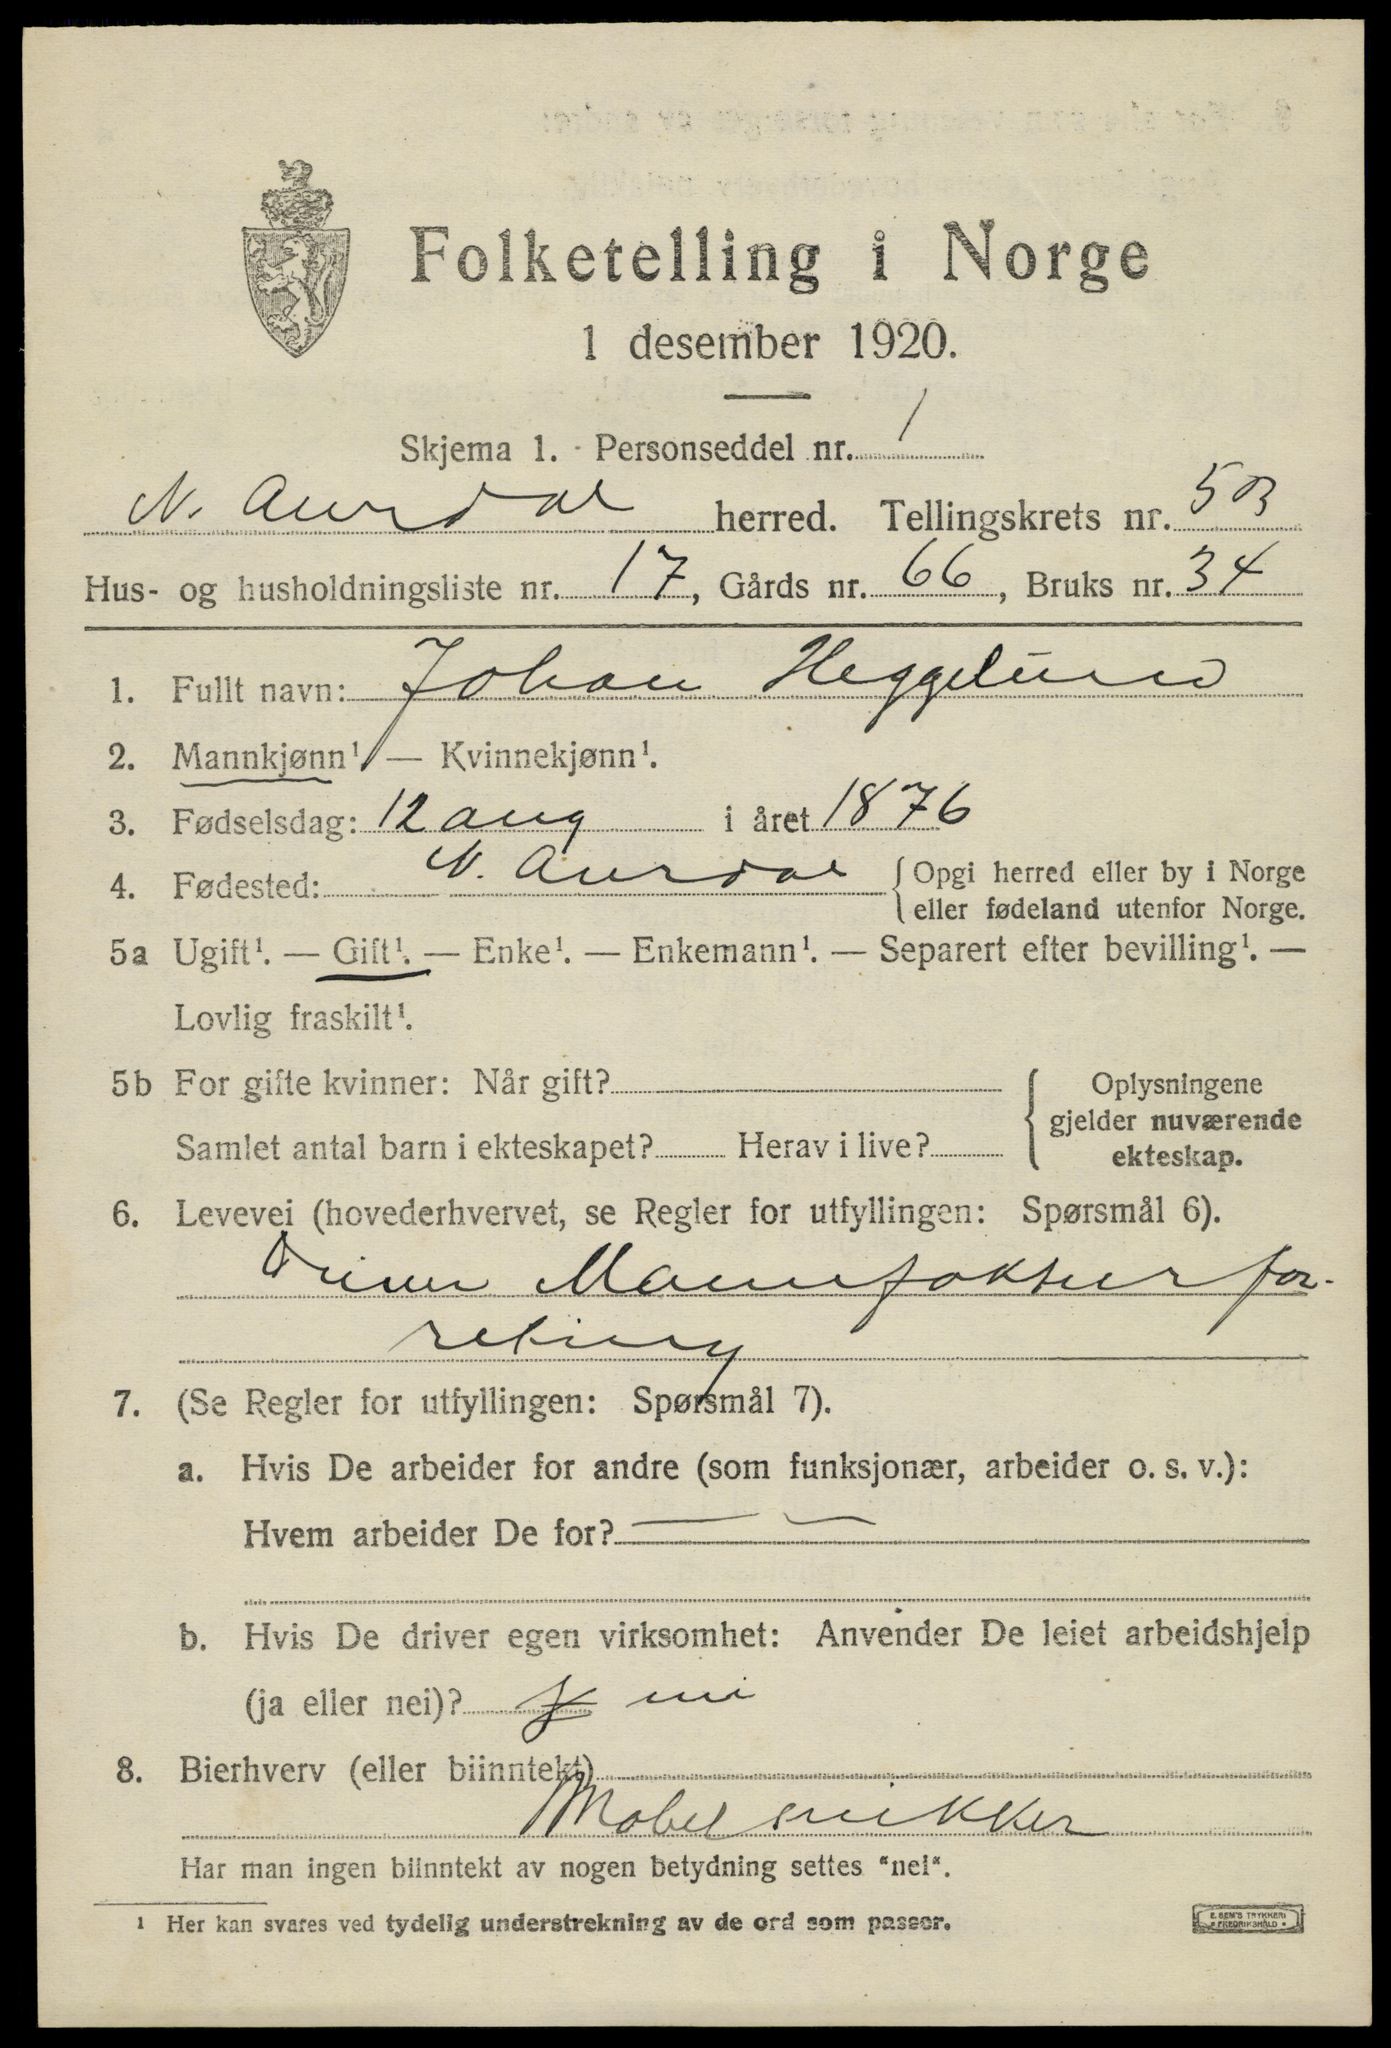 Folketelling i Norge
1 desember 1920.
Skjema 1. - Personseddel nr. 1
N. Aurdal herred. Tellingskrets nr. 5 B
Hus- og husholdningsliste nr. 17, Gårds nr. 66, Bruks nr. 34
1. Fullt navn: Johan Heggelund
2. Mannkjønn¹ — Kvinnekjønn¹.
3. Fødselsdag: 12 aug i året 1876
4. Fødested: N. Aurdal { Opgi herred eller by i Norge
eller fødeland utenfor Norge.
5a Ugift¹. — Gift¹. — Enke¹. — Enkemann¹. — Separert efter bevilling¹. —
Lovlig fraskilt¹.
5b For gifte kvinner: Når gift?
Samlet antal barn i ekteskapet? Herav i live?
{ Oplysningene
gjelder nuværende
ekteskap.
6. Levevei (hovederhvervet, se Regler for utfyllingen: Spørsmål 6).
Driver Manufaktur for-
retning
7. (Se Regler for utfyllingen: Spørsmål 7).
a. Hvis De arbeider for andre (som funksjonær, arbeider o. s. v.):
Hvem arbeider De for? — —
b. Hvis De driver egen virksomhet: Anvender De leiet arbeidshjelp
(ja eller nei)? nei
8. Bierhverv (eller biinntekt)
Møbelsnikker
Har man ingen biinntekt av nogen betydning settes "nei".
¹ Her kan svares ved tydelig understrekning av de ord som passer.
E. SEM'S TRYKKERI
• FREDRIKSHALD •